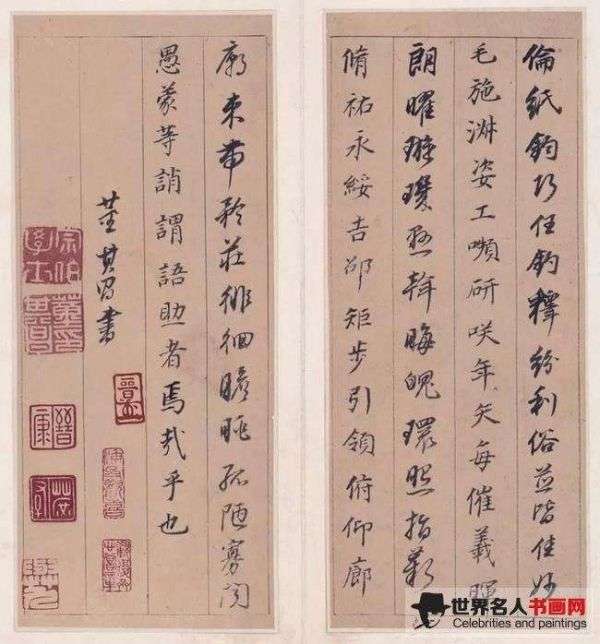 倫紙鈞巧任釣釋紛利俗並皆佳妙
毛施淑姿工嚬研咲年矢每催羲暉
朗曜璇璣懸斡晦魄環照指薪
脩祐永綏吉邵矩步引領俯仰廊
廟束帶矜莊徘徊瞻眺孤陋寡聞
愚蒙等誚謂語助者焉哉乎也
董其昌書
宗伯學士
世界名人书画网
Celebrities and paintings